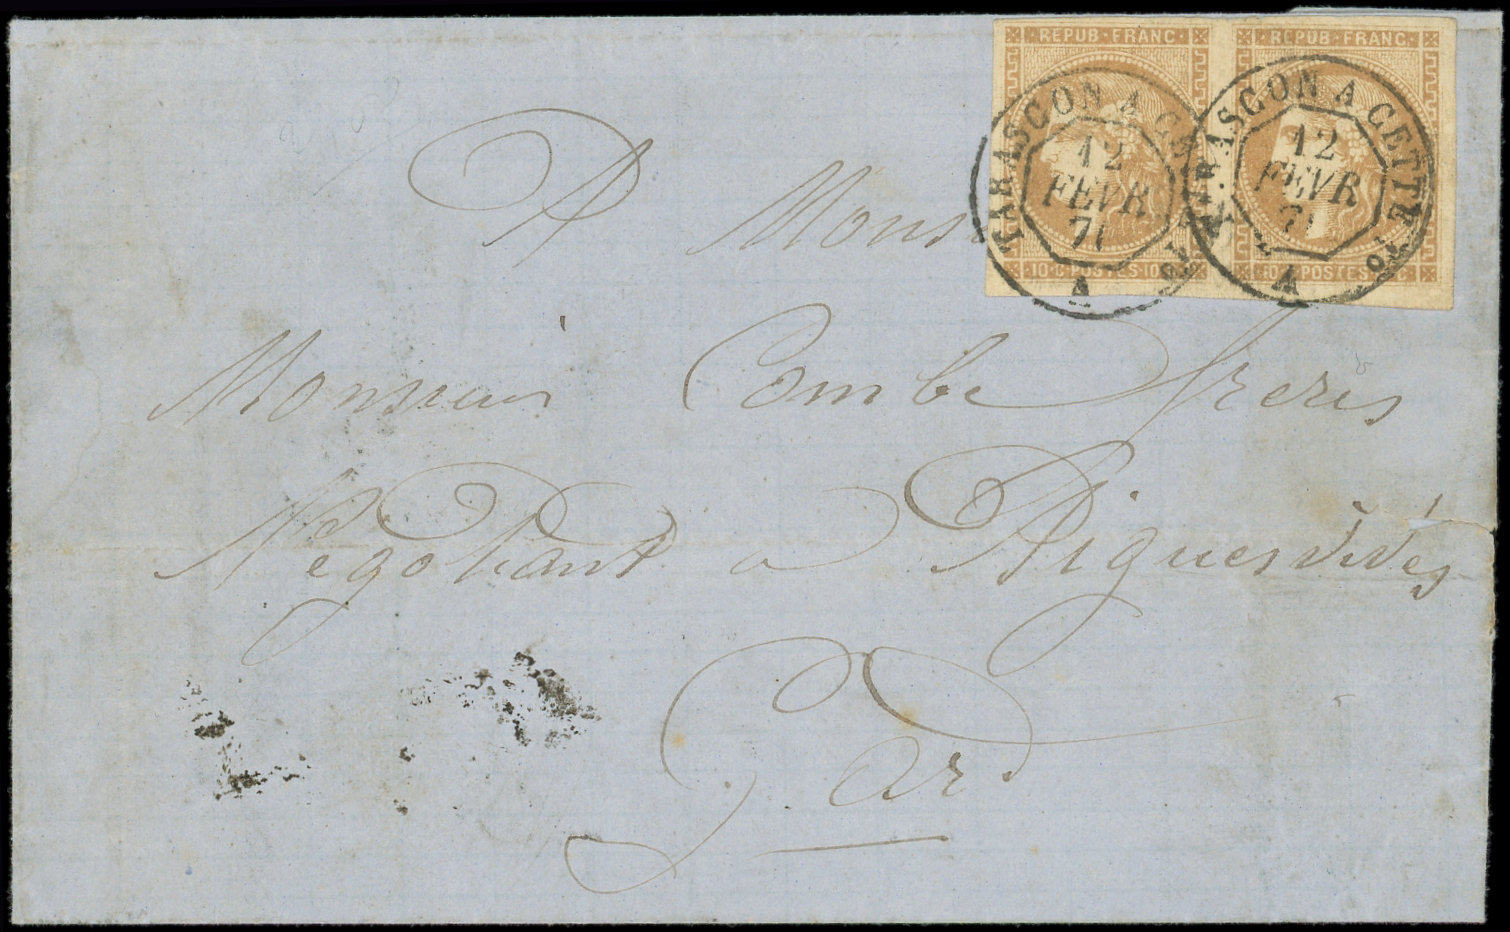 REPUB·FRANC· REPUB·FRANC·
TARASCON A CETTE TARASCON A CETTE
12 12
FEVR FEVR
71 71
A A
10 C POSTES 10 C 10 C POSTES 10 C
A Mons
Monsieur Combe freres
Négotiant a Aiguesvives
Gard